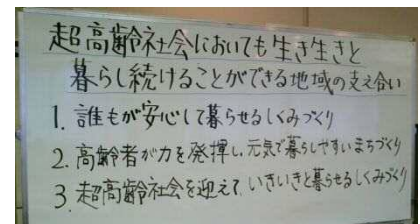 超高齢社会においても生き生きと
暮らし続けることができる地域の支え合い
1. 誰もが安心して暮らせるしくみづくり
2. 高齢者が力を発揮し、元気で暮らしやすいまちづくり
3. 超高齢社会を迎えて、いきいきと暮らせるしくみづくり